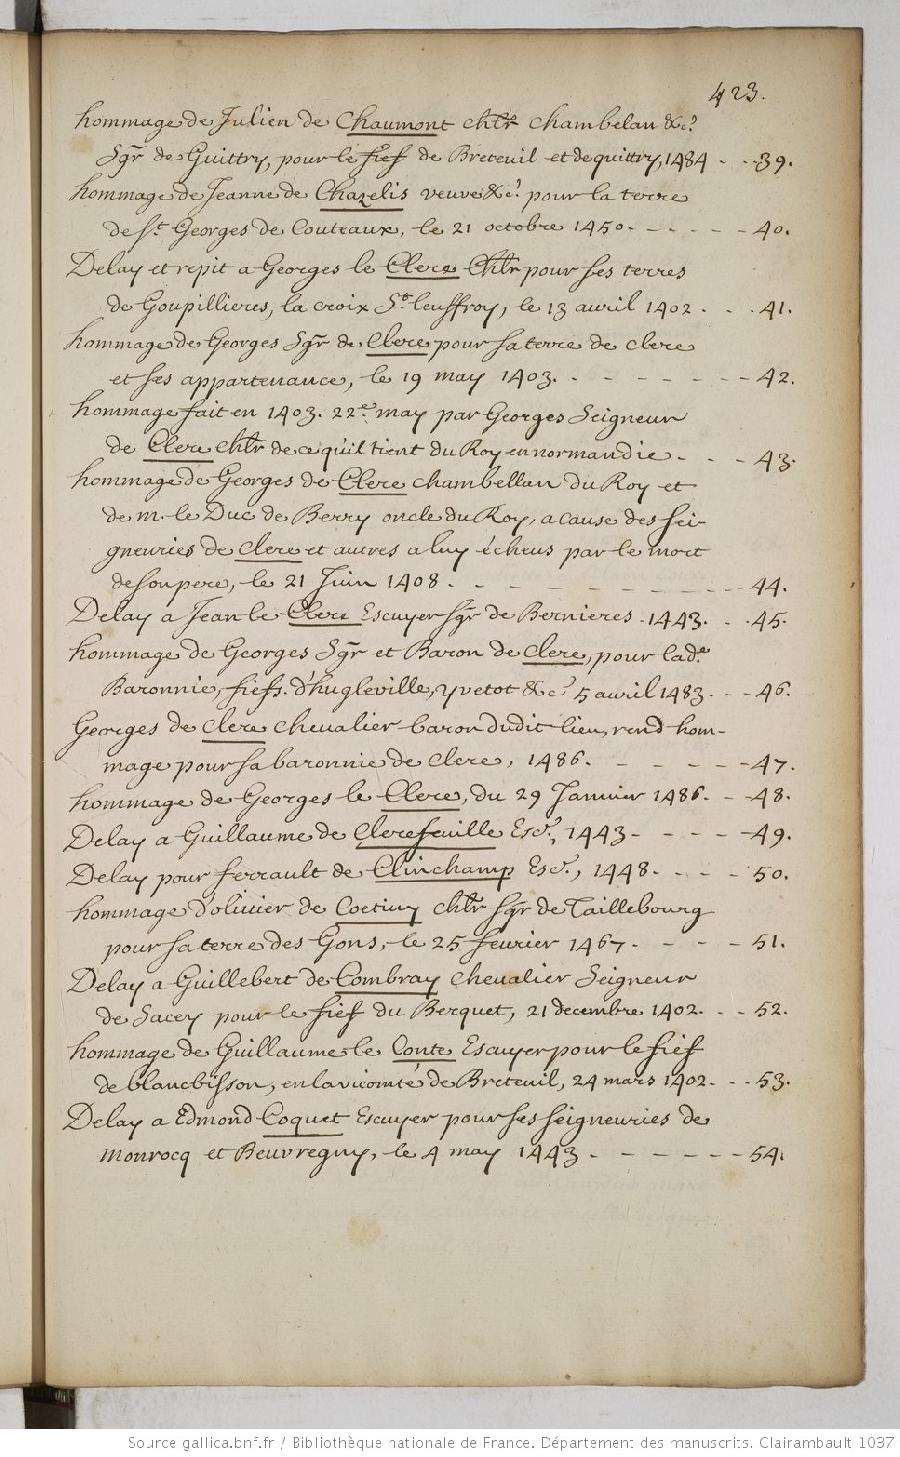 423.
hommage de Julien de Chaumont chlr chambelan &c.
Sgr de Guittry, pour le fief de Breteuil et de quittry, 1484 - - 39.
hommage de Jeanne de Chazelis veuve &c. pour la terre
de St Georges de Coutraux, le 21 octobre 1450. - - - - - 40.
Delay et repit a Georges le Clerc Chlr pour ses terres
de Goupillieres, la croix St leuffroy, le 13 avril 1402. - - 41.
hommage de Georges Sgr de Clere pour sa terre de clere
et ses appartenance, le 19 may 1403. - - - - - - 42.
hommage fait en 1403. 22e may par Georges Seigneur
de Clere chlr de ce qu'il tient du Roy en normandie - - - 43.
hommage de Georges de Clere chambellan du Roy et
de m. le Duc de Berry oncle du Roy, a cause des sei-
gneuries de clere et autres a luy écheus par le mort
de son pere, le 21 Juin 1408. - - - - - - - - 44.
Delay a Jean le Clerc Escuyer sgr de Bernieres. 1443. - - 45.
hommage de Georges Sgr et Baron de Clere, pour lade
Baronnie, fiefs. d'hugleville, yvetot &c. 5 avril 1483 - - - 46.
Georges de Clere chevalier baron dudit lieu, rend hom-
mage pour sa baronnie de clere, 1486. - - - - - 47.
hommage de Georges le Clere, du 29 Janvier 1486. - - 48.
Delay a Guillaume de Clerefeuille Escr, 1443 - - - - - 49.
Delay pour ferrault de Clinchamp Escr, 1448. - - - - 50.
hommage d'olivier de Coetivy chlr sgr de Taillebourg
pour sa terre des Gons, le 25 fevrier 1467 - - - - - 51.
Delay a Guillebert de Combray chevalier Seigneur
de Sacey pour le fief du Berquet, 21 decembre 1402. - - 52.
hommage de Guillaume le Conte Escuyer pour le fief
de blancbisson, en la vicomté de Breteuil, 24 mars 1402. - - 53.
Delay a Edmond Coquet Escuyer pour ses seigneuries de
monrocq et Beuvregny, le 4 may 1443 - - - - - - 54.
Source gallica.bnf.fr / Bibliothèque nationale de France. Département des manuscrits. Clairambault 1037